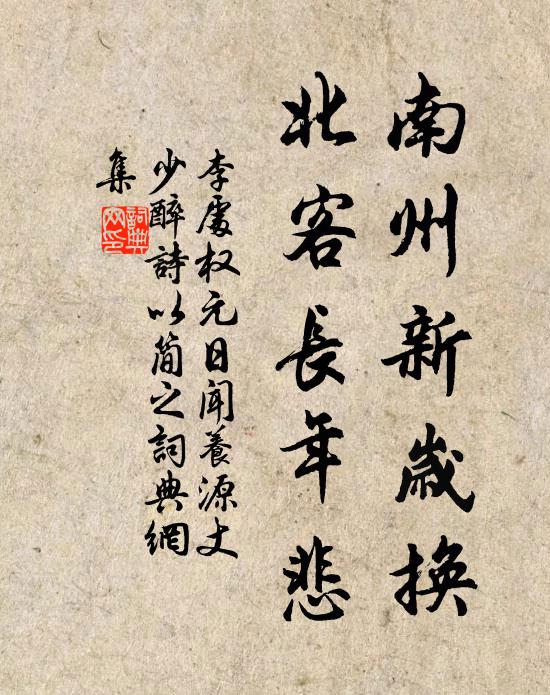 南州新歲換
北客長年悲
李處权元日聞養源丈
少醉詩以簡之詞典網
集
詞典网印